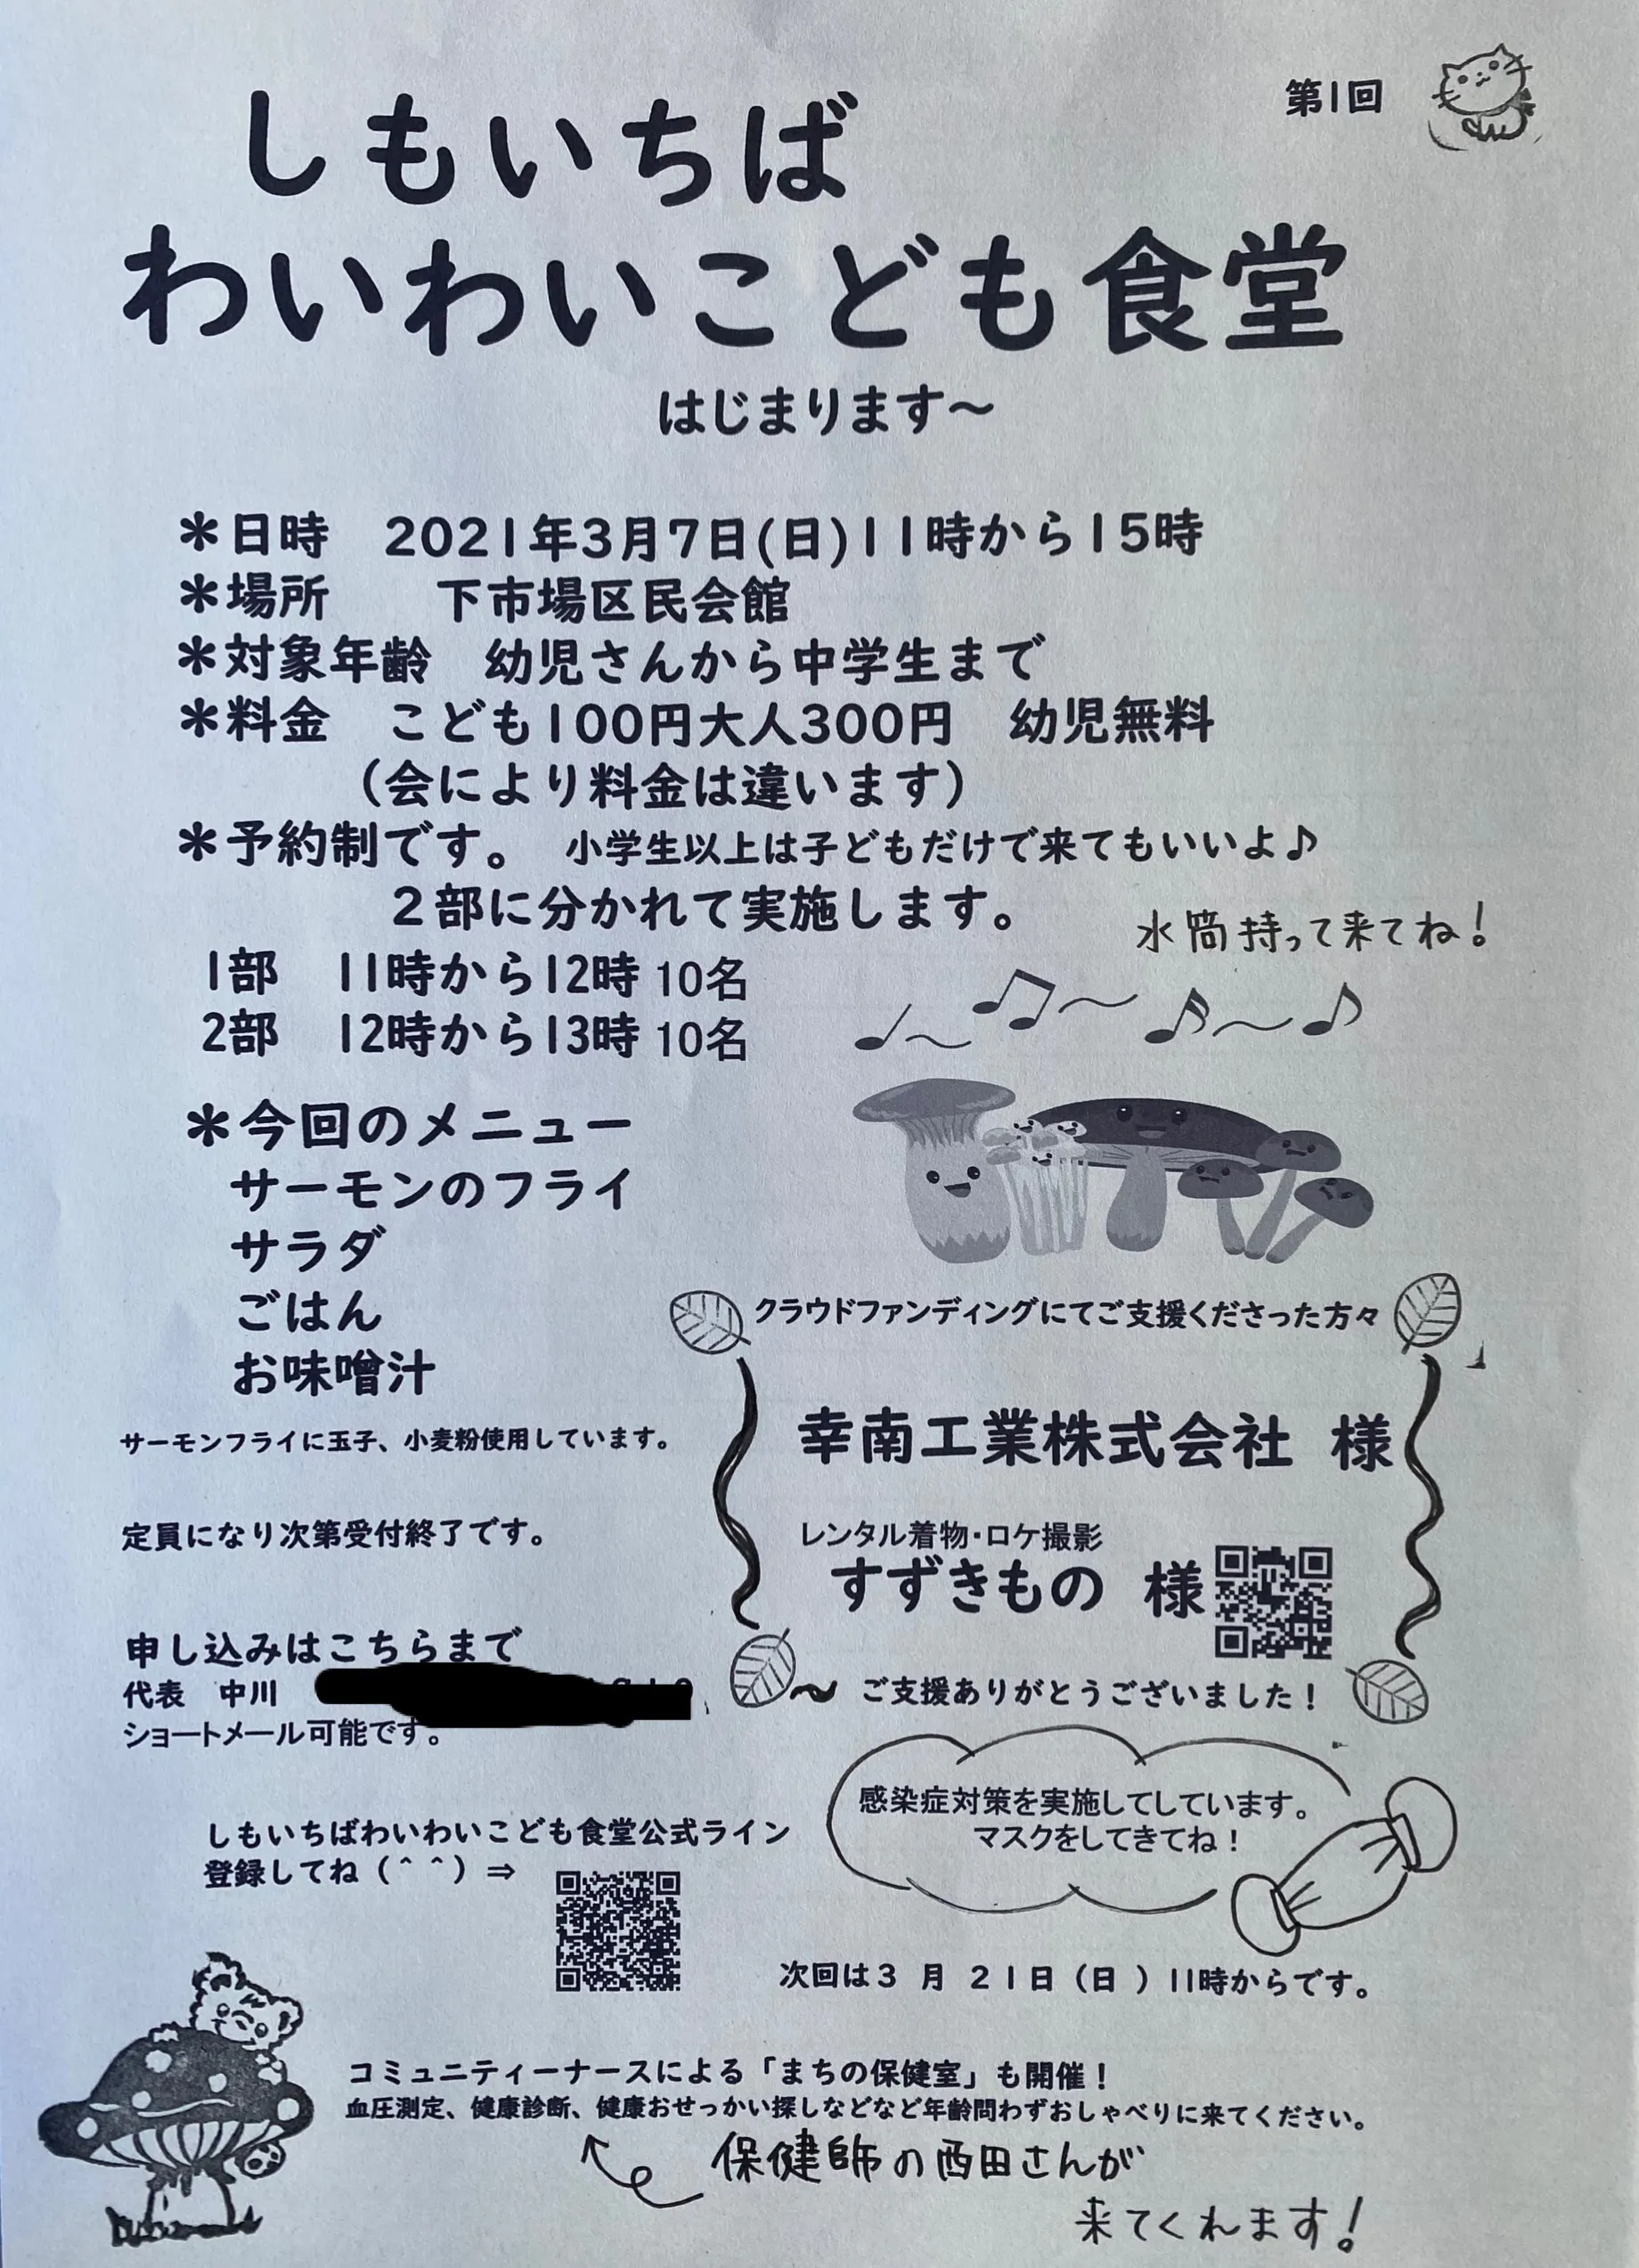 第1回
しもいちば
わいわいこども食堂
はじまります～
＊日時　2021年3月7日(日)11時から15時
＊場所　下市場区民会館
＊対象年齢　幼児さんから中学生まで
＊料金　こども100円大人300円　幼児無料
（会により料金は違います）
＊予約制です。　小学生以上は子どもだけで来てもいいよ♪
２部に分かれて実施します。
水筒持って来てね！
1部　11時から12時 10名
2部　12時から13時 10名
＊今回のメニュー
サーモンのフライ
サラダ
ごはん
お味噌汁
サーモンフライに玉子、小麦粉使用しています。
定員になり次第受付終了です。
クラウドファンディングにてご支援くださった方々
幸南工業株式会社 様
レンタル着物・ロケ撮影
すずきもの 様
～ ご支援ありがとうございました！
申し込みはこちらまで
代表　中川
ショートメール可能です。
感染症対策を実施してしています。
マスクをしてきてね！
しもいちばわいわいこども食堂公式ライン
登録してね（＾＾）⇒
次回は３ 月 ２１日（日 ）11時からです。
コミュニティーナースによる「まちの保健室」も開催！
血圧測定、健康診断、健康おせっかい探しなどなど年齢問わずおしゃべりに来てください。
保健師の西田さんが
来てくれます！